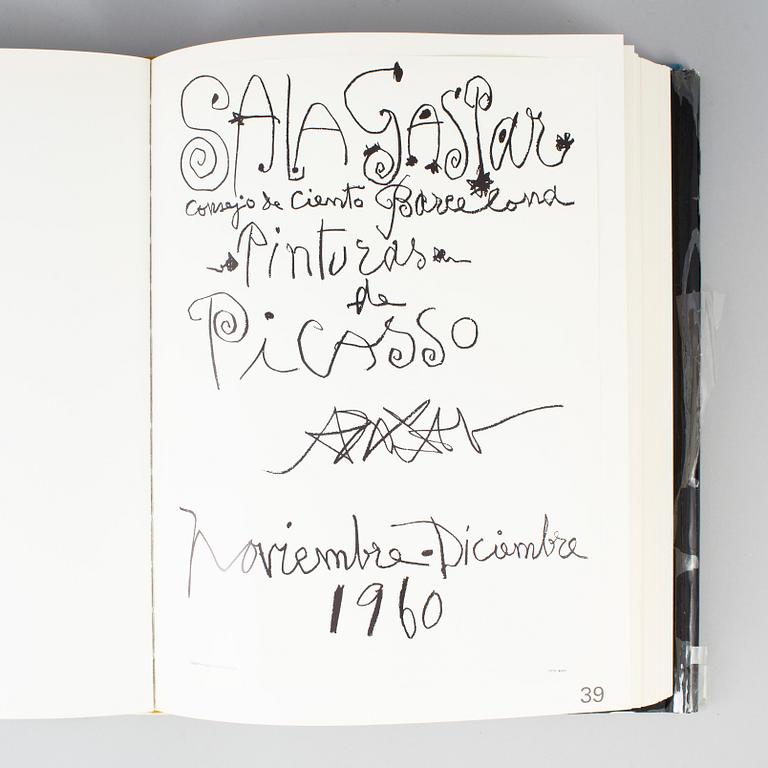 SALA GASPAR
consejo de ciento Barcelona
Pinturas
de
PiCASSO
Noviembre-Diciembre
1960
39